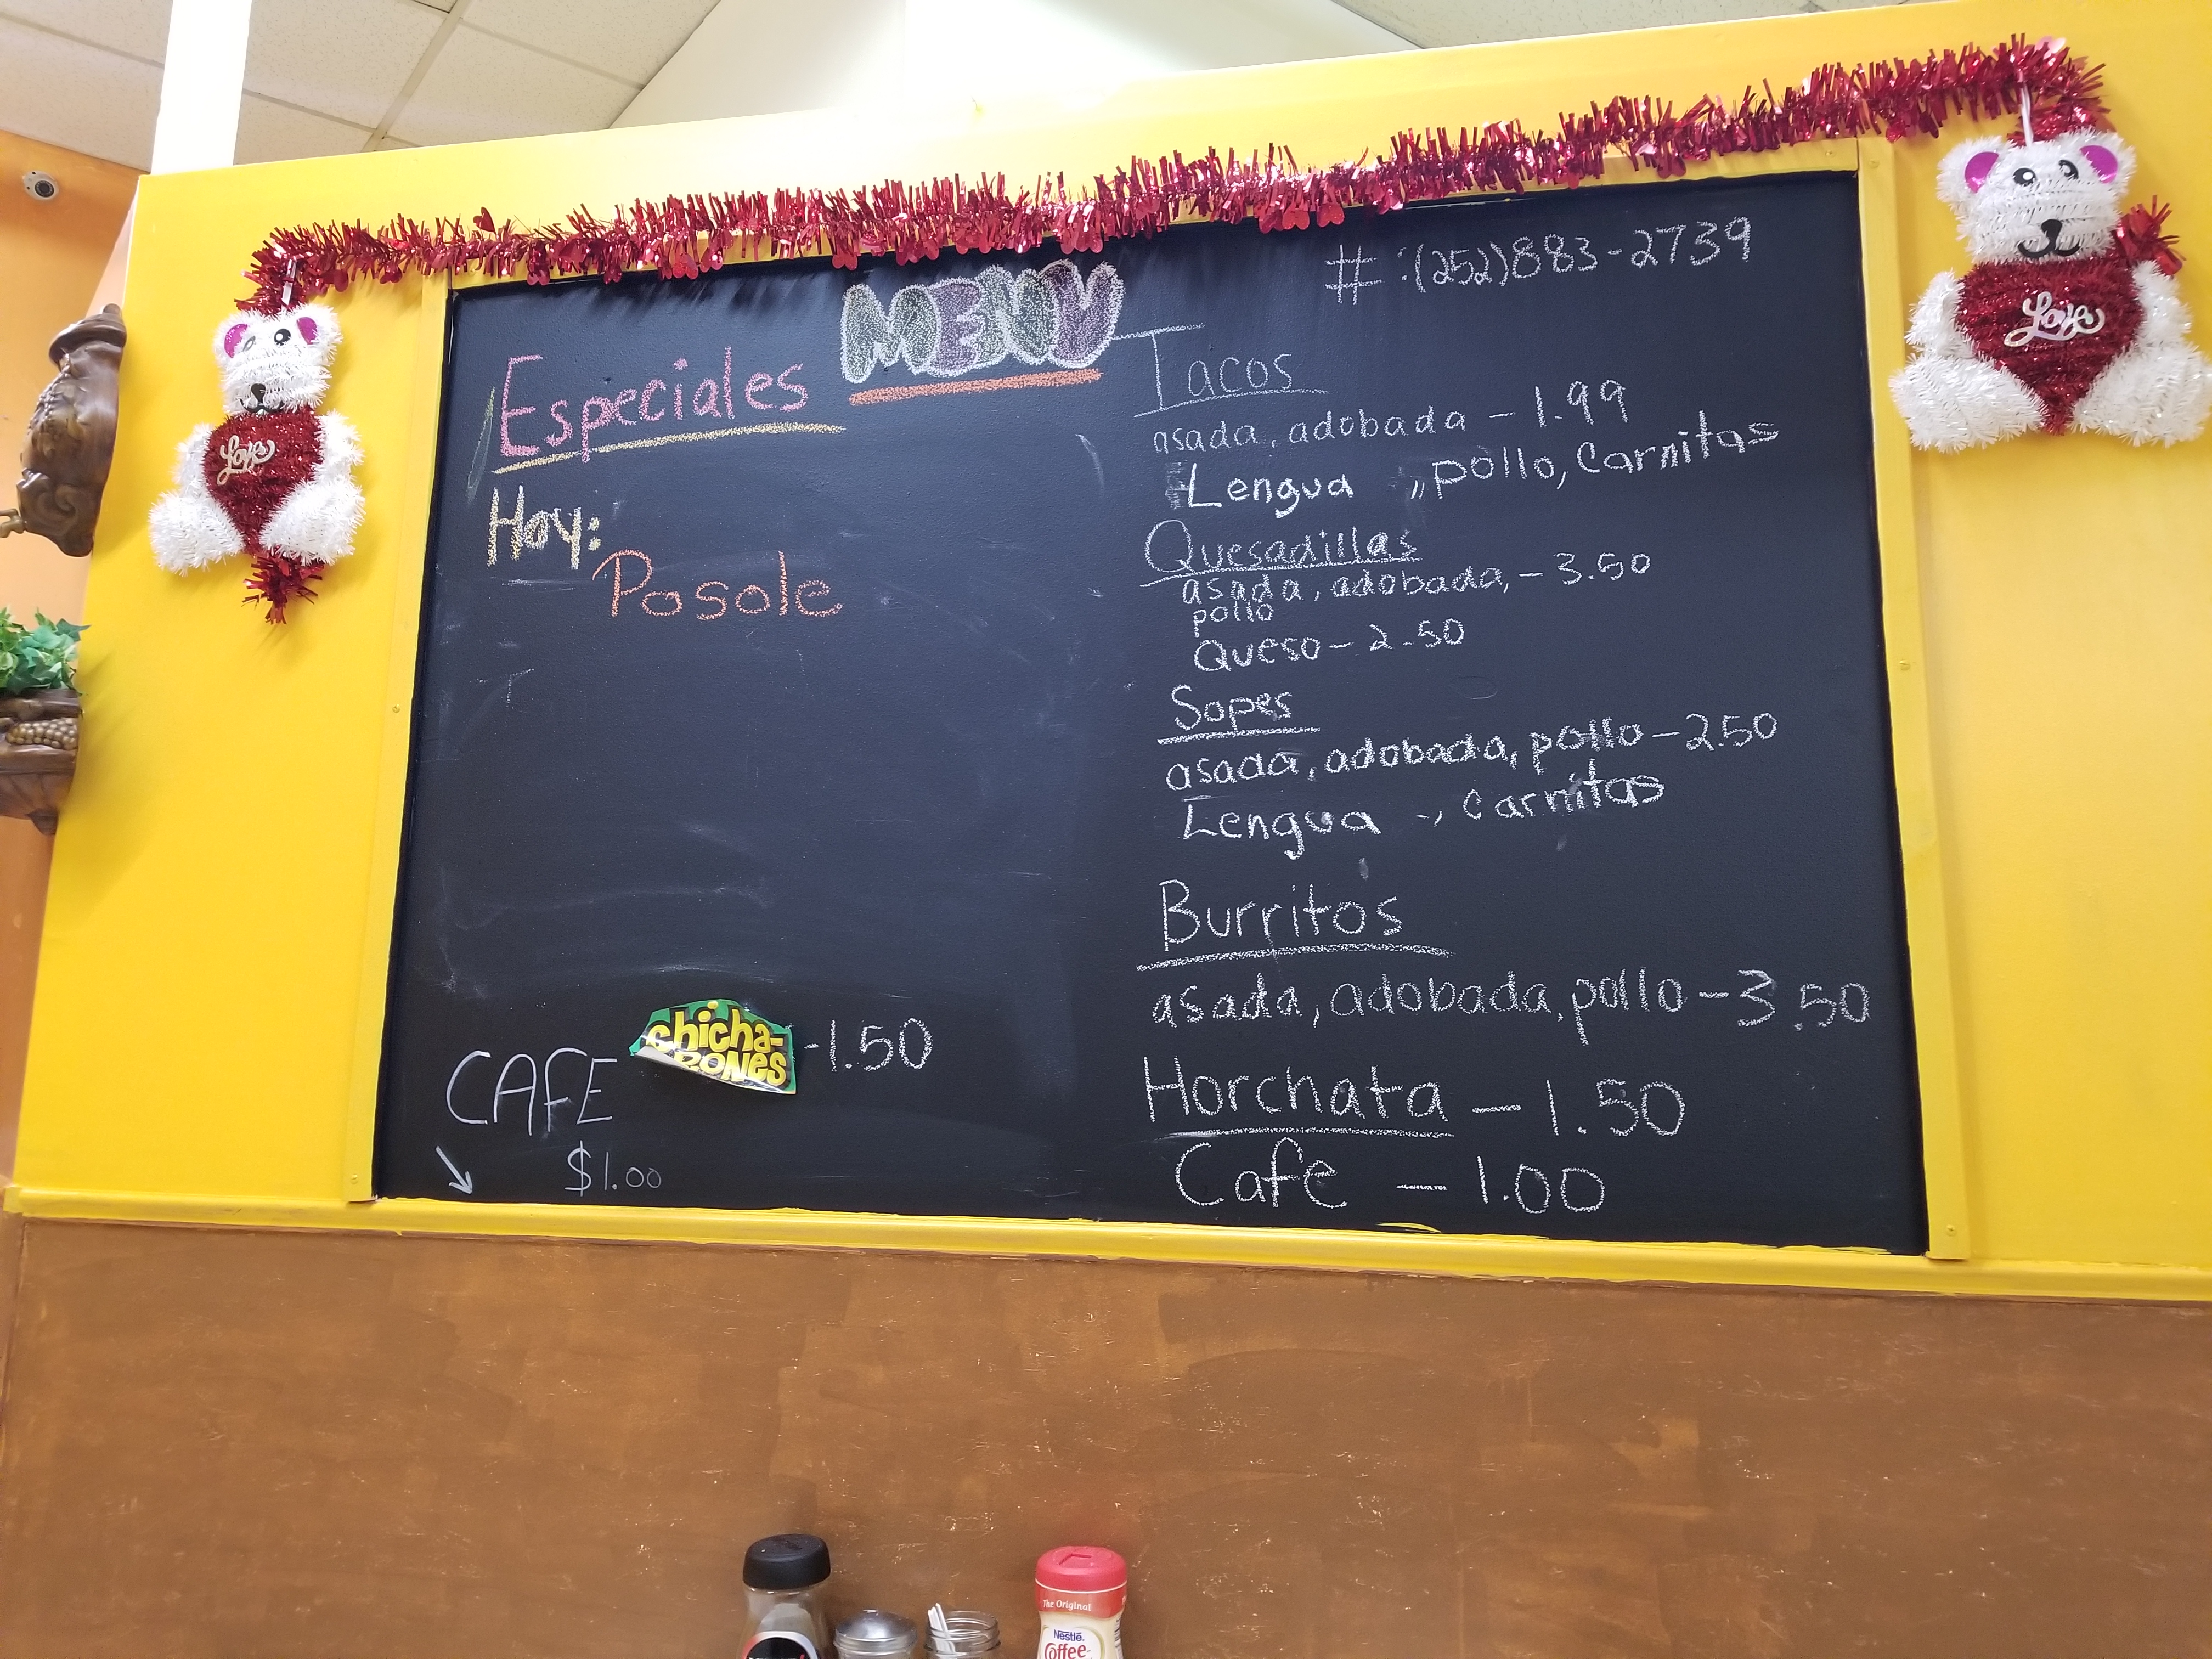 MENU
# :(252)883-2739
Especiales
Hoy:
Posole
chicha-
RONES
-1.50
CAFE
$1.00
Tacos
asada, adobada - 1.99
Lengua ,, pollo, Carnitas
Quesadillas
asada, adobada, - 3.50
pollo
Queso - 2.50
Sopes
asada, adobada, pollo - 2.50
Lengua -, Carnitas
Burritos
asada, adobada, pollo - 3.50
Horchata - 1.50
Cafe - 1.00
Love
Love
The Original
Nestlé
Coffee-